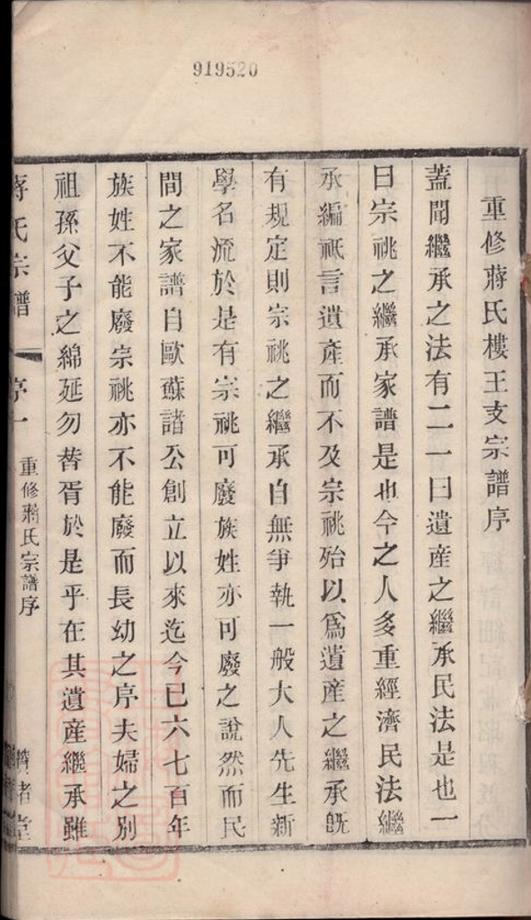 919520
重修蔣氏樓王支宗譜序
蓋聞繼承之法有二一曰遺產之繼承民法是也一
曰宗祧之繼承家譜是也今之人多重經濟民法繼
承編祇言遺產而不及宗祧殆以爲遺產之繼承旣
有規定則宗祧之繼承自無爭執一般大人先生新
學名流於是有宗祧可廢族姓亦可廢之說然而民
間之家譜自歐蘇諸公創立以來迄今已六七百年
族姓不能廢宗祧亦不能廢而長幼之序夫婦之別
祖孫父子之綿延勿替胥於是乎在其遺產繼承雖
蔣氏宗譜
序一
重修蔣氏宗譜序